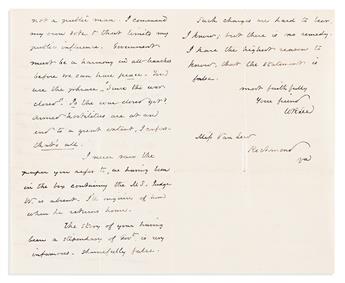 not a public man. I command
my own vote & that limits my
public influence. Government
must be a harmony in all branches
before we can have peace. You
use the phrase, "Since the war
closed". Is the war closed yet?
Armed hostilities are at an
end to a great extent, I confess.
that's all.
I never saw the
paper you refer to, as having been
in the box containing the MS. Judge
W. is absent. I'll inquire of him
when he returns home.
The story of your having
been a stipendiary of Govt is very
infamous. Shamefully false.
Such charges are hard to bear
I know; but there is no remedy.
I have the highest reason to
know, that the statement is
false.
most faithfully
Your friend
Miss Van Lew
Richmond
Va